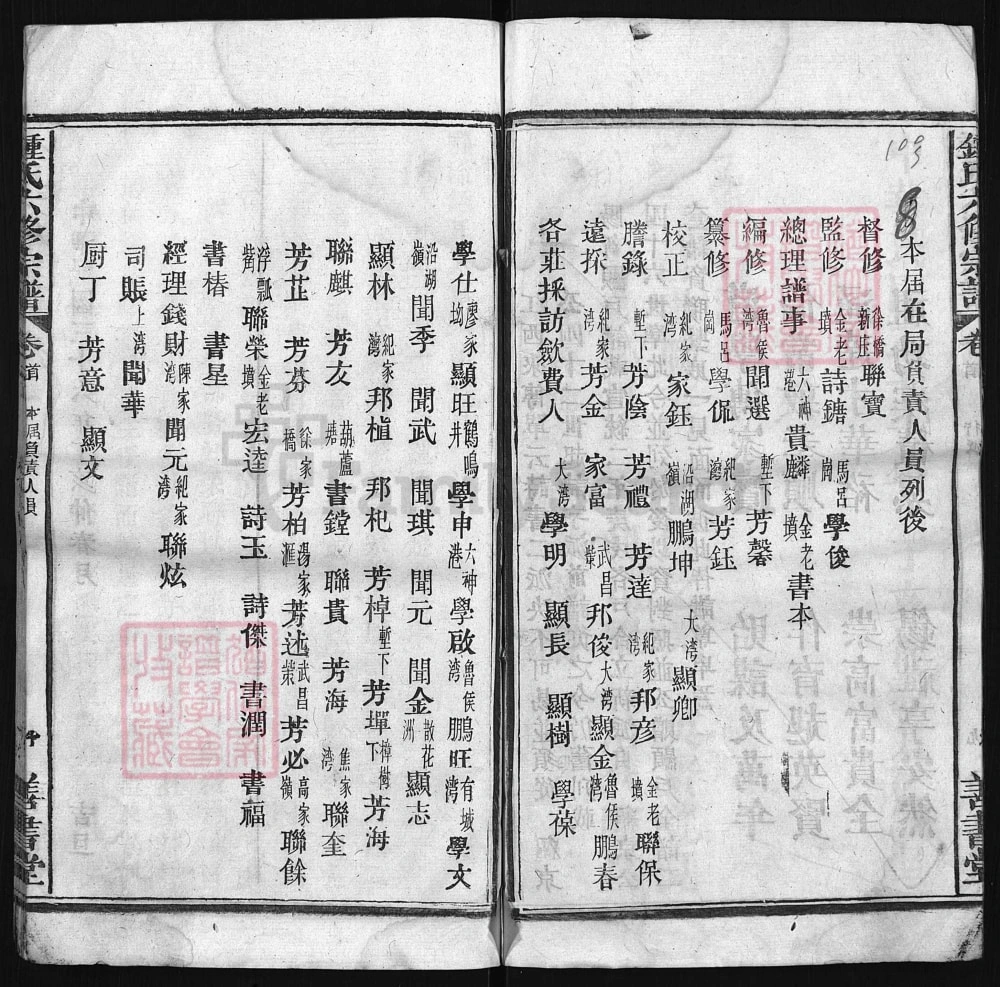 鍾氏六修宗譜
卷首
善書堂
本屆在局負責人員列後
督修 徐橋新庄聯寶
監修 金老墳詩鐥 馬呂崗學俊
總理譜事 六神港貴麟 金老墳書本
編修 魯侯灣聞選 塹下芳馨
纂修 馬呂崗學侃 紀家灣芳鈺
校正 紀家灣家鈺 沿湖嶺鵬坤 大灣顯卿
謄錄 塹下芳蔭 芳禮 芳達 紀家灣邦彦 金老墳聯保
遠採 紀家灣芳金 家富 武昌邦俊 大灣顯金 魯侯灣鵬春
各莊採訪歛費人 大灣學明 顯長 顯樹 學葆
學仕 廖家坳顯旺 鶴鳴井學申 六神港學啟 魯侯灣鵬旺 有城灣學文
沿湖嶺聞季 聞武 聞琪 聞元 聞金 散花洲顯志
顯林 紀家灣邦植 邦杞 芳棹 塹下芳墠 樟樹下芳海
聯麒 芳友 葫蘆塘書鏜 聯貴 芳海 焦家灣聯奎
芳芷 芳芬 徐家橋芳柏 湯家滙芳述 武昌芳必 高家嶺聯餘
浮瓢街聯榮 金老墳宏逵 詩玉 詩傑 書潤 書福
書椿 書星
經理錢財 陳家灣聞元 紀家灣聯炫
司賬 上灣聞華
厨丁 芳意 顯文
鍾氏六修宗譜
卷首 本屆負責人員
善書堂